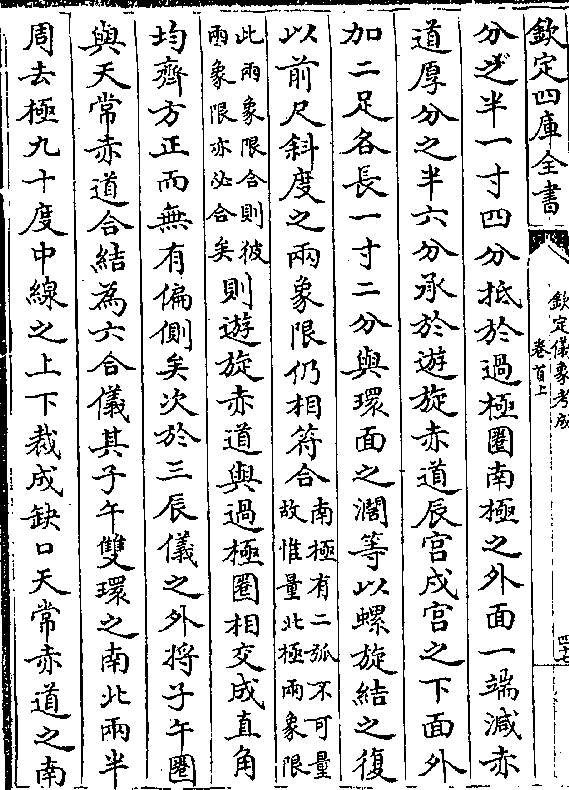 欽定四庫全書
欽定儀象考成
卷首上
分之半一寸四分抵於過極圈南極之外面一端減赤
道厚分之半六分承於遊旋赤道辰宫戌宫之下面外
加二足各長一寸二分與環面之濶等以螺旋結之復
以前尺斜度之兩象限仍相符合南極有二弧不可量
故惟量北極兩象限
此兩象限合則彼
兩象限亦必合矣則遊旋赤道與過極圈相交成直角
均齊方正而無有偏側矣次於三辰儀之外將子午圈
與天常赤道合結為六合儀其子午雙環之南北兩半
周去極九十度中線之上下裁成缺口天常赤道之南